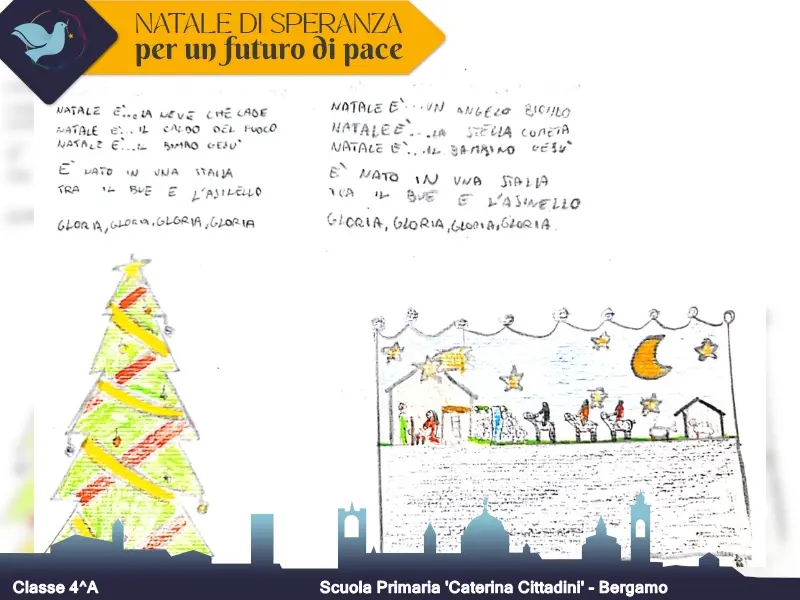 NATALE DI SPERANZA
per un futuro di pace
NATALE È...LA NEVE CHE CADE
NATALE È... IL CALDO DEL FUOCO
NATALE È...IL BIMBO GESU'
È NATO IN UNA STALLA
TRA IL BUE E L'ASINELLO
GLORIA, GLORIA, GLORIA, GLORIA
NATALE È...UN ANGELO BIONDO
NATALE È...LA STELLA COMETA
NATALE È...IL BAMBINO GESU'
È NATO IN UNA STALLA
TRA IL BUE E L'ASINELLO
GLORIA, GLORIA, GLORIA, GLORIA.
Classe 4^A
Scuola Primaria 'Caterina Cittadini' - Bergamo